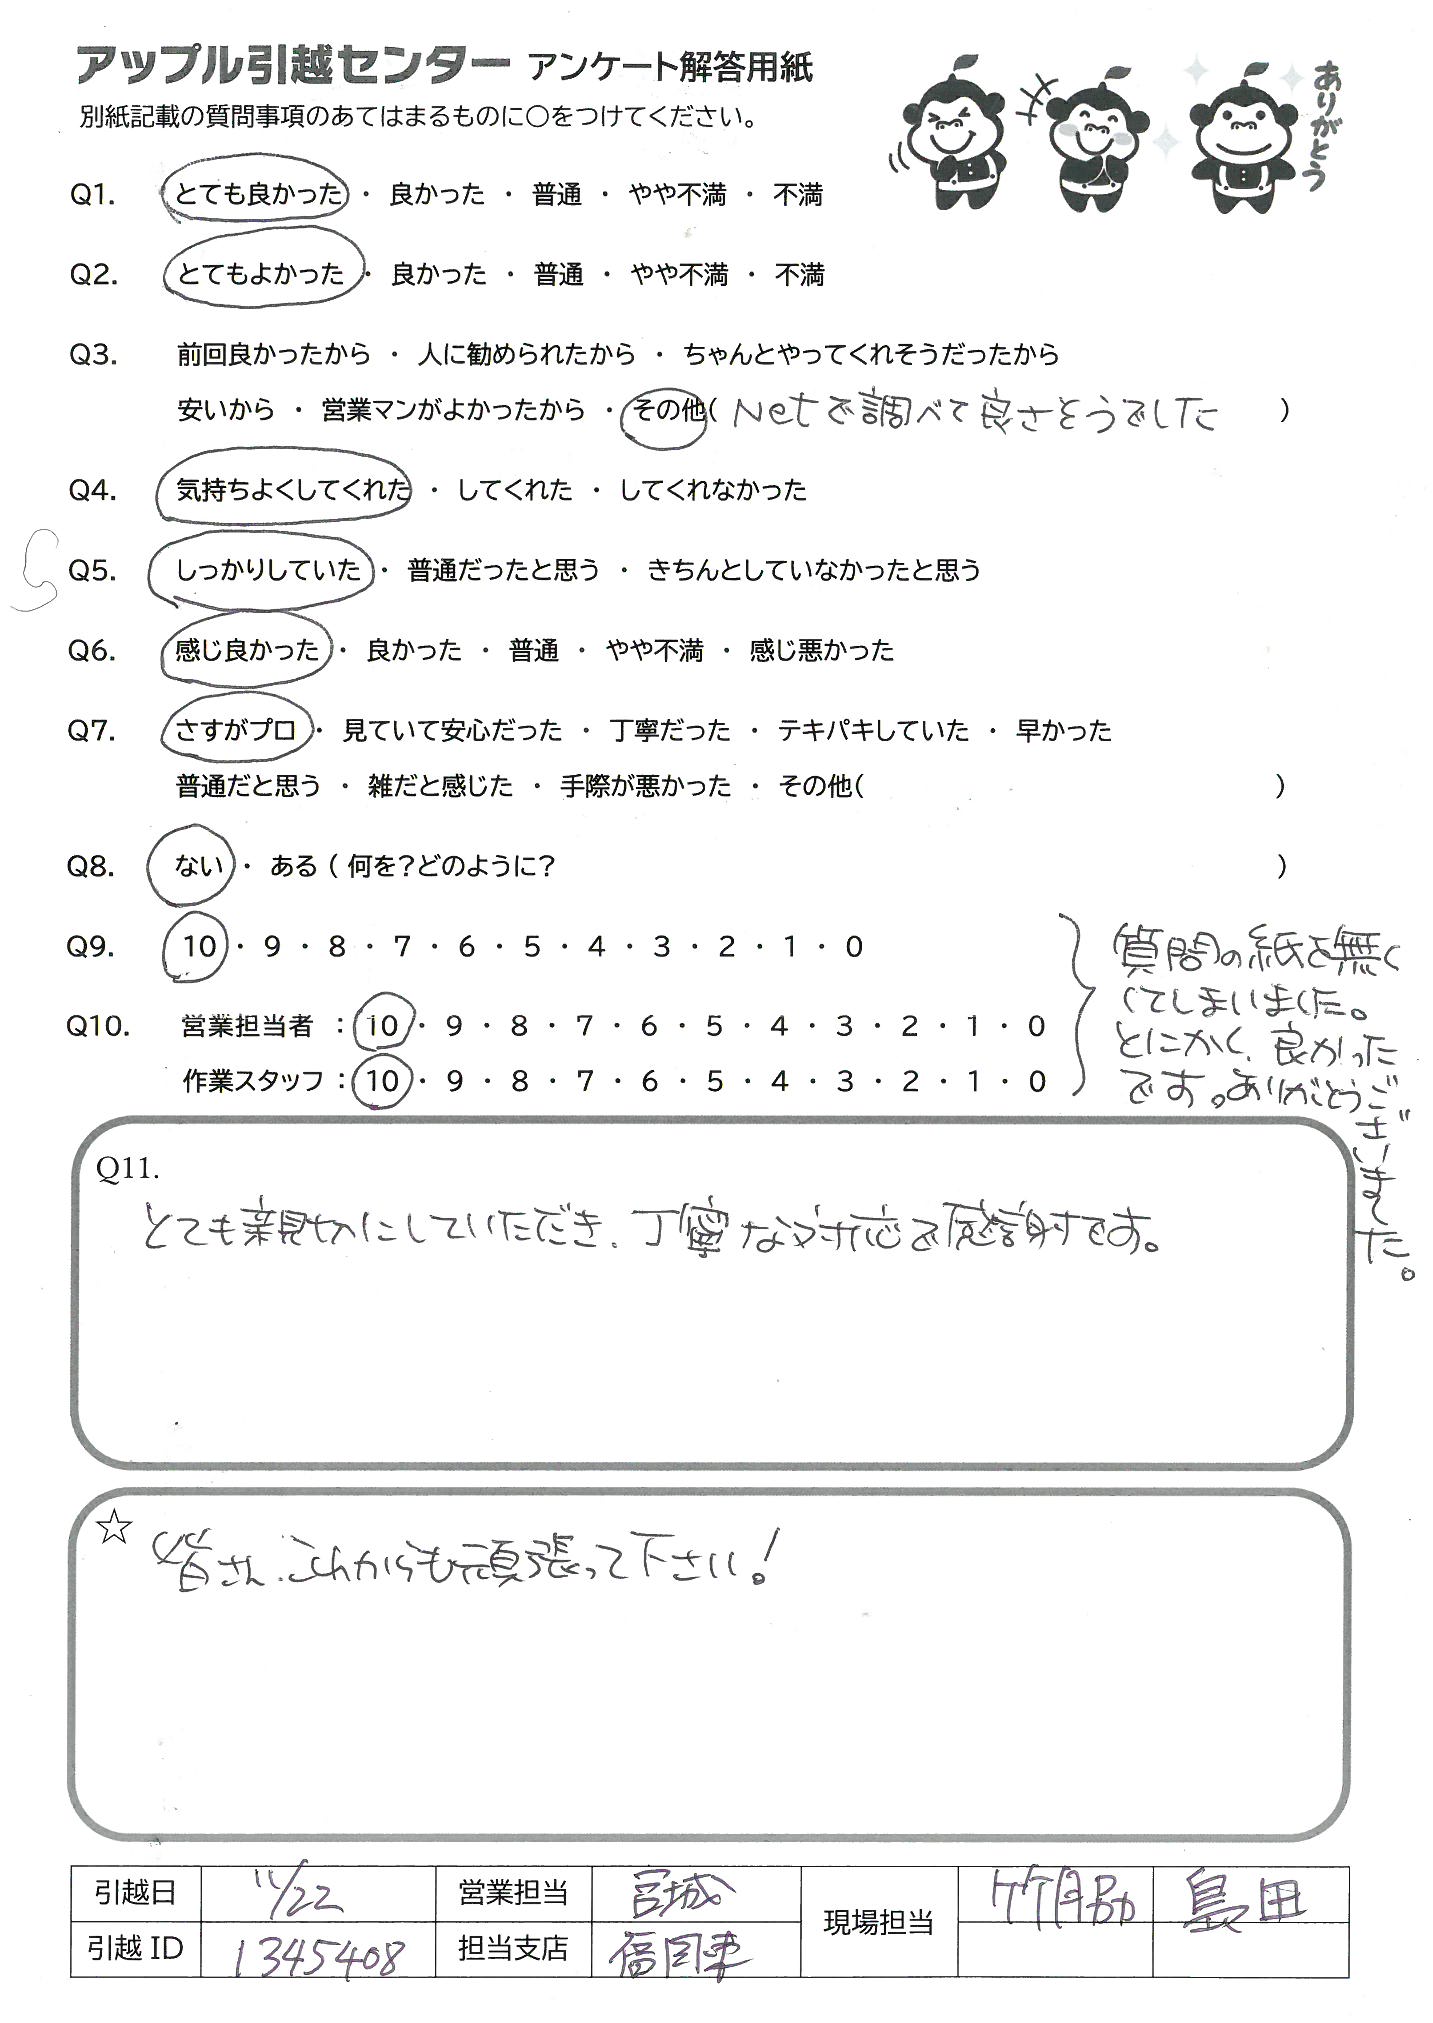 アップル引越センター アンケート解答用紙
別紙記載の質問事項のあてはまるものに○をつけてください。
ありがとう
Q1. とても良かった ・ 良かった ・ 普通 ・ やや不満 ・ 不満
Q2. とてもよかった ・ 良かった ・ 普通 ・ やや不満 ・ 不満
Q3. 前回良かったから ・ 人に勧められたから ・ ちゃんとやってくれそうだったから
安いから ・ 営業マンがよかったから ・ その他( Netで調べて良さそうでした )
Q4. 気持ちよくしてくれた ・ してくれた ・ してくれなかった
Q5. しっかりしていた ・ 普通だったと思う ・ きちんとしていなかったと思う
Q6. 感じ良かった ・ 良かった ・ 普通 ・ やや不満 ・ 感じ悪かった
Q7. さすがプロ ・ 見ていて安心だった ・ 丁寧だった ・ テキパキしていた ・ 早かった
普通だと思う ・ 雑だと感じた ・ 手際が悪かった ・ その他( )
Q8. ない ・ ある ( 何を？どのように？ )
Q9. 10 ・ 9 ・ 8 ・ 7 ・ 6 ・ 5 ・ 4 ・ 3 ・ 2 ・ 1 ・ 0
Q10. 営業担当者 : 10 ・ 9 ・ 8 ・ 7 ・ 6 ・ 5 ・ 4 ・ 3 ・ 2 ・ 1 ・ 0
作業スタッフ : 10 ・ 9 ・ 8 ・ 7 ・ 6 ・ 5 ・ 4 ・ 3 ・ 2 ・ 1 ・ 0
質問の紙を無く
くてしまいました。
とにかく、良かった
です。ありがとうご
ざいました。
Q11.
とても親切にしていただき、丁寧な対応で感謝です。
☆
皆さん、これからも頑張って下さい！
引越日 11/22 営業担当 宮城 現場担当 島田
引越 ID 1345408 担当支店 福岡東